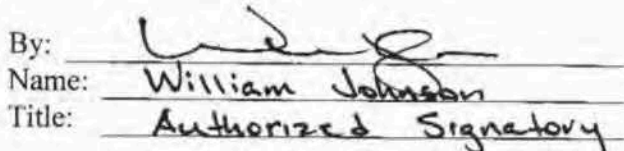 By:
Name: William Johnson
Title: Authorized Signatory